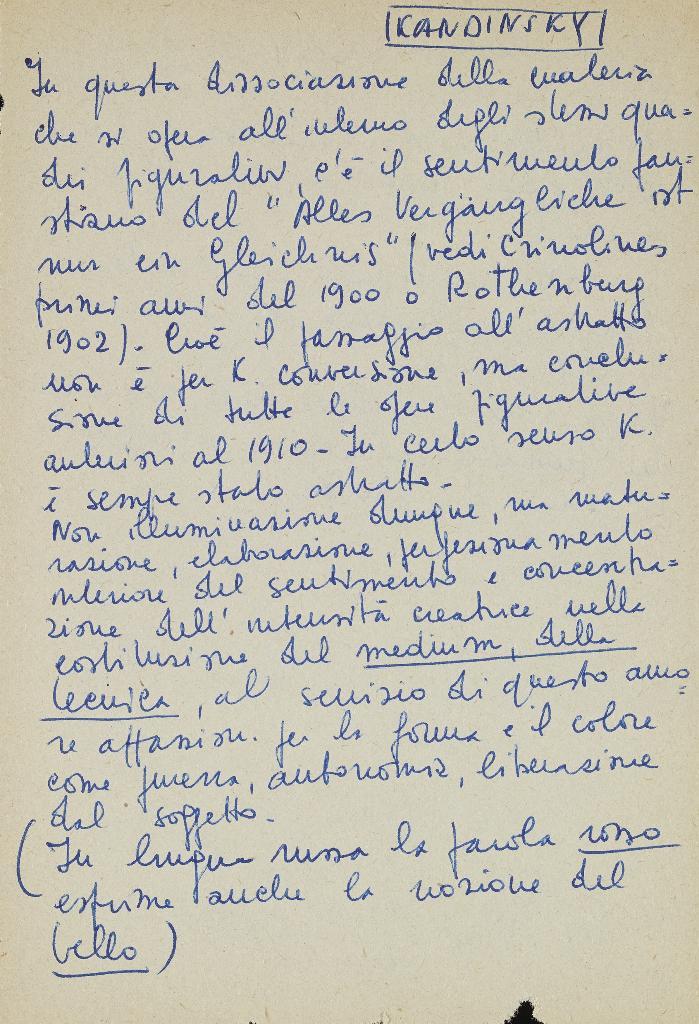 KANDINSKY
In questa dissociazione della materia
che si opera all'interno degli stessi qua=
dri figurativi, c'è il sentimento fau=
stiano del "Alles Vergängliche ist
nur ein Gleichnis" (vedi Crinolines
primi anni del 1900 o Rothenburg
1902). Cioè il passaggio all'astratto
non è per K. conversione, ma conclu=
sione di tutte le opere figurative
anteriori al 1910 - In certo senso K.
è sempre stato astratto. -
Non illuminazione dunque, ma matu=
razione, elaborazione, perfezionamento
interiore del sentimento e concentra=
zione dell'intensità creatrice nella
costituzione del medium, della
tecnica, al servizio di questo amo=
re affassion. per la forma e il colore
come purezza, autonomia, liberazione
dal soggetto. -
(In lingua russa la parola rosso
esprime anche la nozione del
bello)